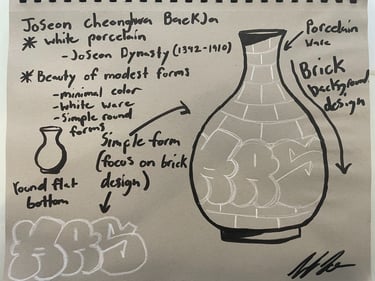 Joseon cheonghwa BaekJa
* white porcelain
- Joseon Dynasty (1392-1910)
* Beauty of modest forms
- minimal color
- white ware
- simple round
forms
Simple form
(focus on brick
design)
round flat
bottom
Porcelain
ware
Brick
background
design
ARS